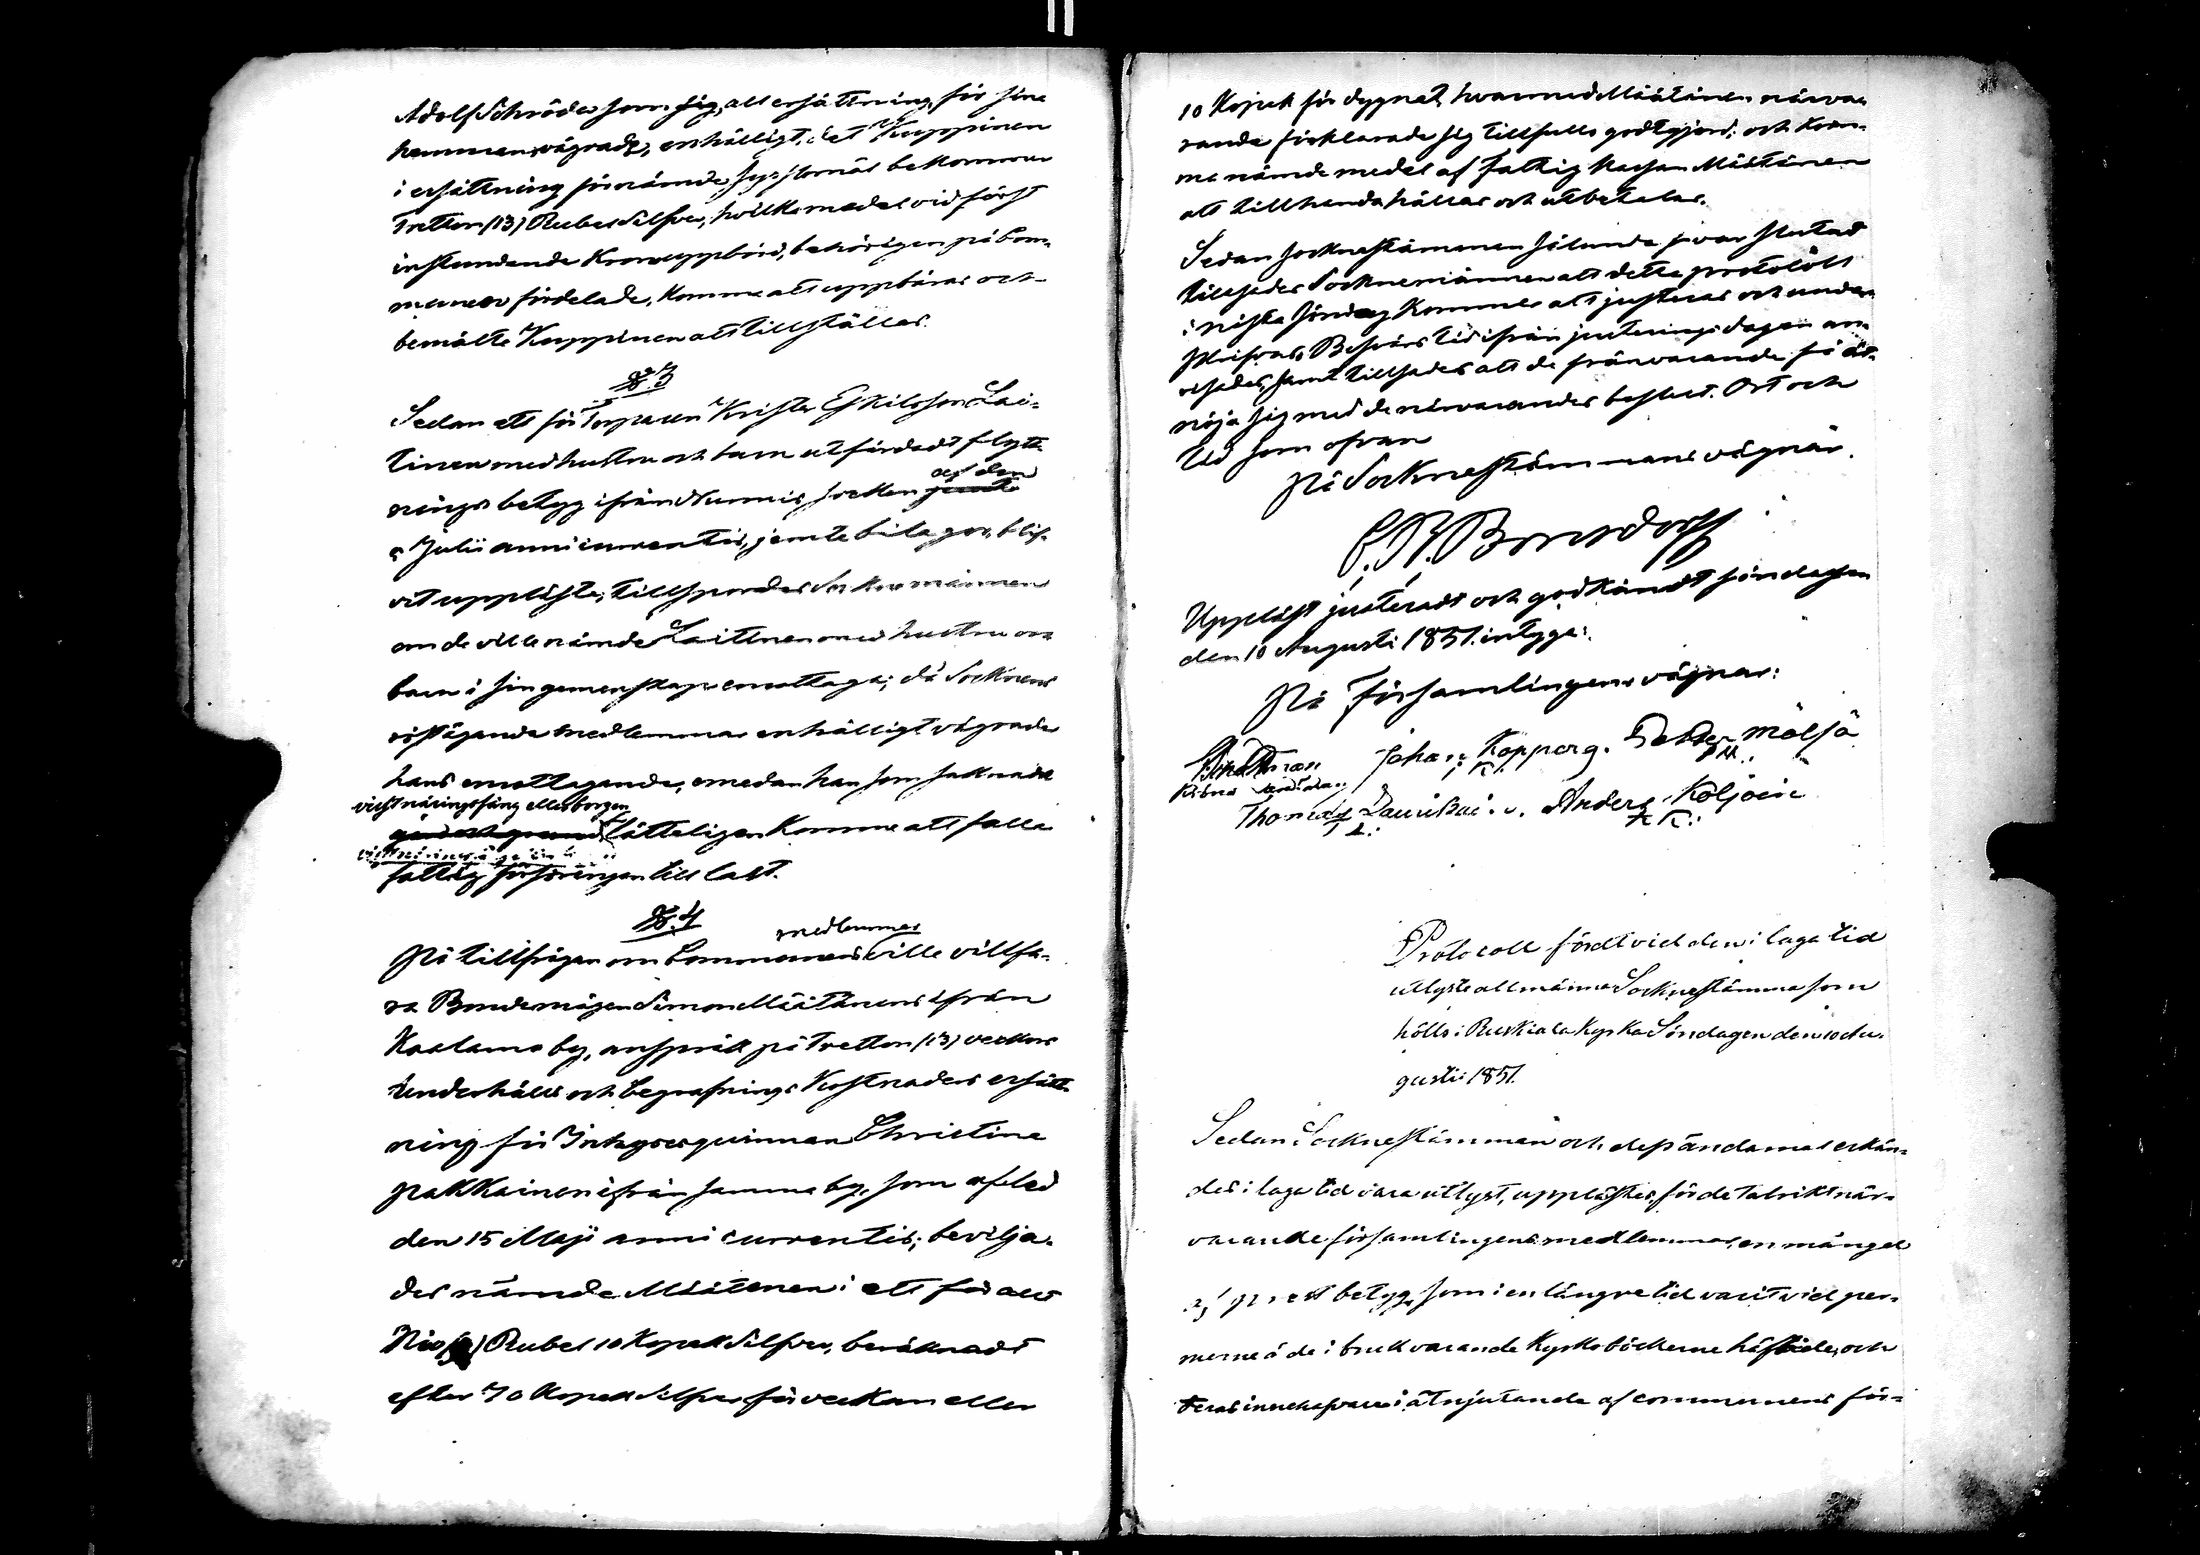 Adolf Schröder som sig all ersättning för sine
hemman vägrade, enhälligt, att Kuppinen
i ersättning för nämnde bekomma
Tretton (13) Rubel Silfver, hvilka medel vid först
instundande Kronouppbörd, behörigen på Com-
munen fördelade, komma att uppbäras och
bemälte Kuppinen att tillställas.
§. 3
Sedan ett för Torparen Krister Eskilsson Lai-
tinen med hustru och barn utfärdadt flytt-
nings betyg ifrån Nurmis socken jemte af den
Julii anni currentis, jemte bilagor, blif-
vit uppläste, tillspordes Sockne männen
om de ville nämnde Laitinen med hustru och
barn i sin gemenskap emottaga; då Socknens
röstägande medlemmar enhälligt vägrade
hans emottagande, emedan han som saknade
visst näringsfång eller borgen
lätteligen komme att falla
fattig försörjningen till last.
§. 4
medlemmar
På tillfrågan om Communens ville villfa-
ra Bondemågen Simon Määtänens ifrån
Kaalamo by, anspråk på Tretton (13) veckors
underhålls och begrafnings kostnaders ersätt-
ning för Inhyses qvinnan Christina
Pakkainen ifrån samma by, som afled
den 15 Maji anni currentis; bevilja-
des nämde Määtenen i ett för allt
Nio (9) Rubel 10 Kopek Silfver, beräknadt
efter 70 Kopek Silfver för veckan eller
10 Kopek för dygnet, hvarmed Määtänen närva-
rande förklarade sig tillfullo godtgjord; och kom-
ma nämde medel af fattig kassan Määttänen
att tillhandahållas och utbetalas.
Sedan Socknestämman sålunda var slutad
tillsades Socknemännen att detta protokoll
i nästa Söndag kommer att justeras och under-
skrifvas, Besvärs tid ifrån justerings dagen an-
visades, samt tillsades att de frånvarande få åt-
nöja sig med de närvarandes beslut. Ort och
tid som ofvan
På Socknestämmans vägnar.
C. R. Bonsdorff
Uppläst justeradt och godkändt söndagen
den 10 Augusti 1851. intyga:
På Församlingens vägnar:
Johan Kopperg. Petter Mölsä
K. PM.
Thomas Anders Köljöin
Protocoll fördt vid den i laga tid
utlyste allmänna Socknestämma som
hölls i Ruskiala Kyrka Söndagen den 10 Au-
gusti 1851.
Sedan Socknestämman och dess ändamål erkän-
des i laga tid vara utlyst, upplästes för de talrikt när-
varande församlingens medlemmar, en mängd
af prest betyg, som i en längre tid varit vid per-
merne å de i bruk varande Kyrkoböckerne häftade, och
deras innehafvare i åtnjutande af communens för-